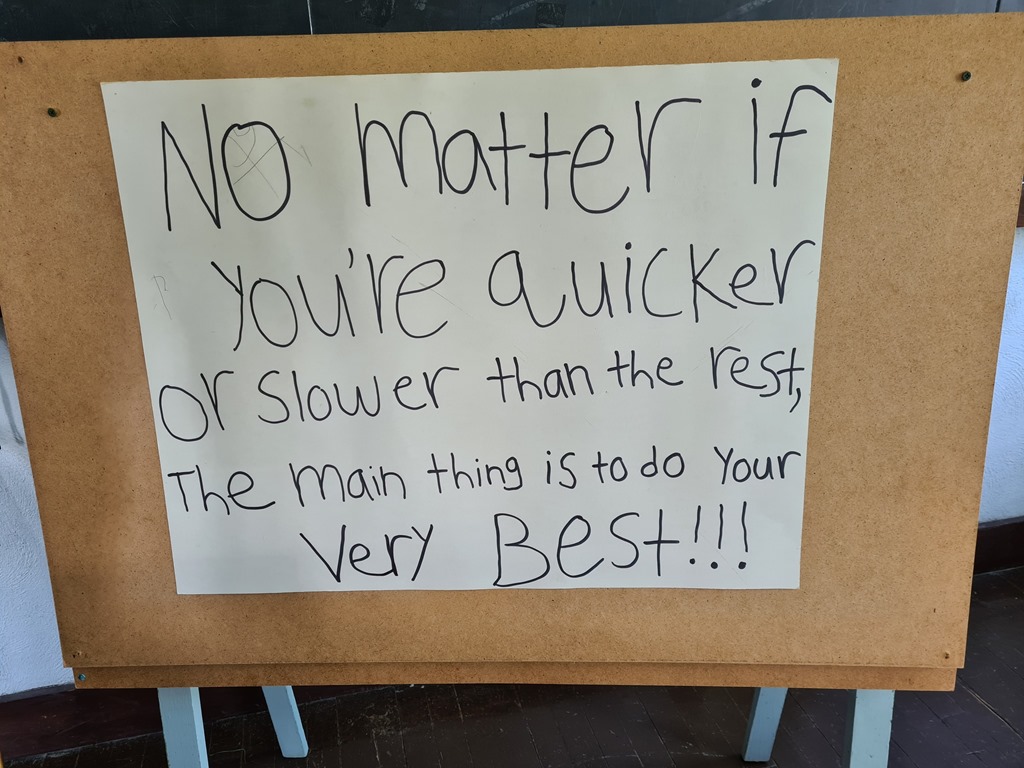 No matter if
you're quicker
or slower than the rest,
The main thing is to do your
Very Best!!!